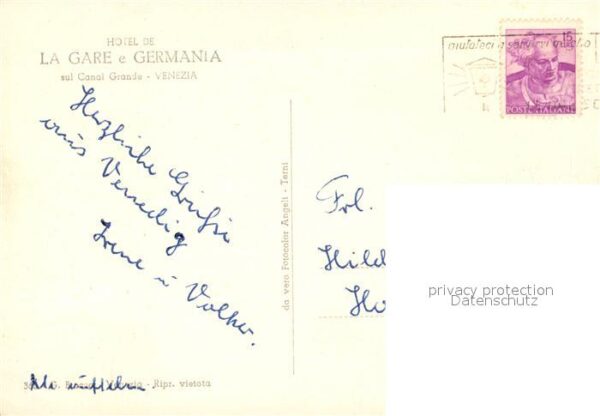 HOTEL DE
LA GARE e GERMANIA
sul Canal Grande - VENEZIA
Herzliche Grüße
aus Venedig
Irene u Volker.
da vero Fotocolor Angeli - Terni
15
aiutateci a servirvi meglio
POSTE ITALIANE
Frl.
Hild
Ho
privacy protection
Datenschutz
G. Venezia - Ripr. vietata